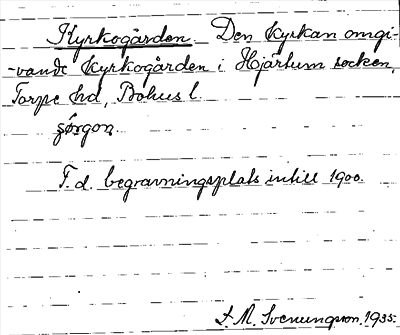 Kyrkogården. Den kyrkan omgi-
-vande kyrkogården i Hjärtum socken,
Torpe hd, Bohus l.
F.d. begravningsplats intill 1900.
S. M. Svenungson 1935.